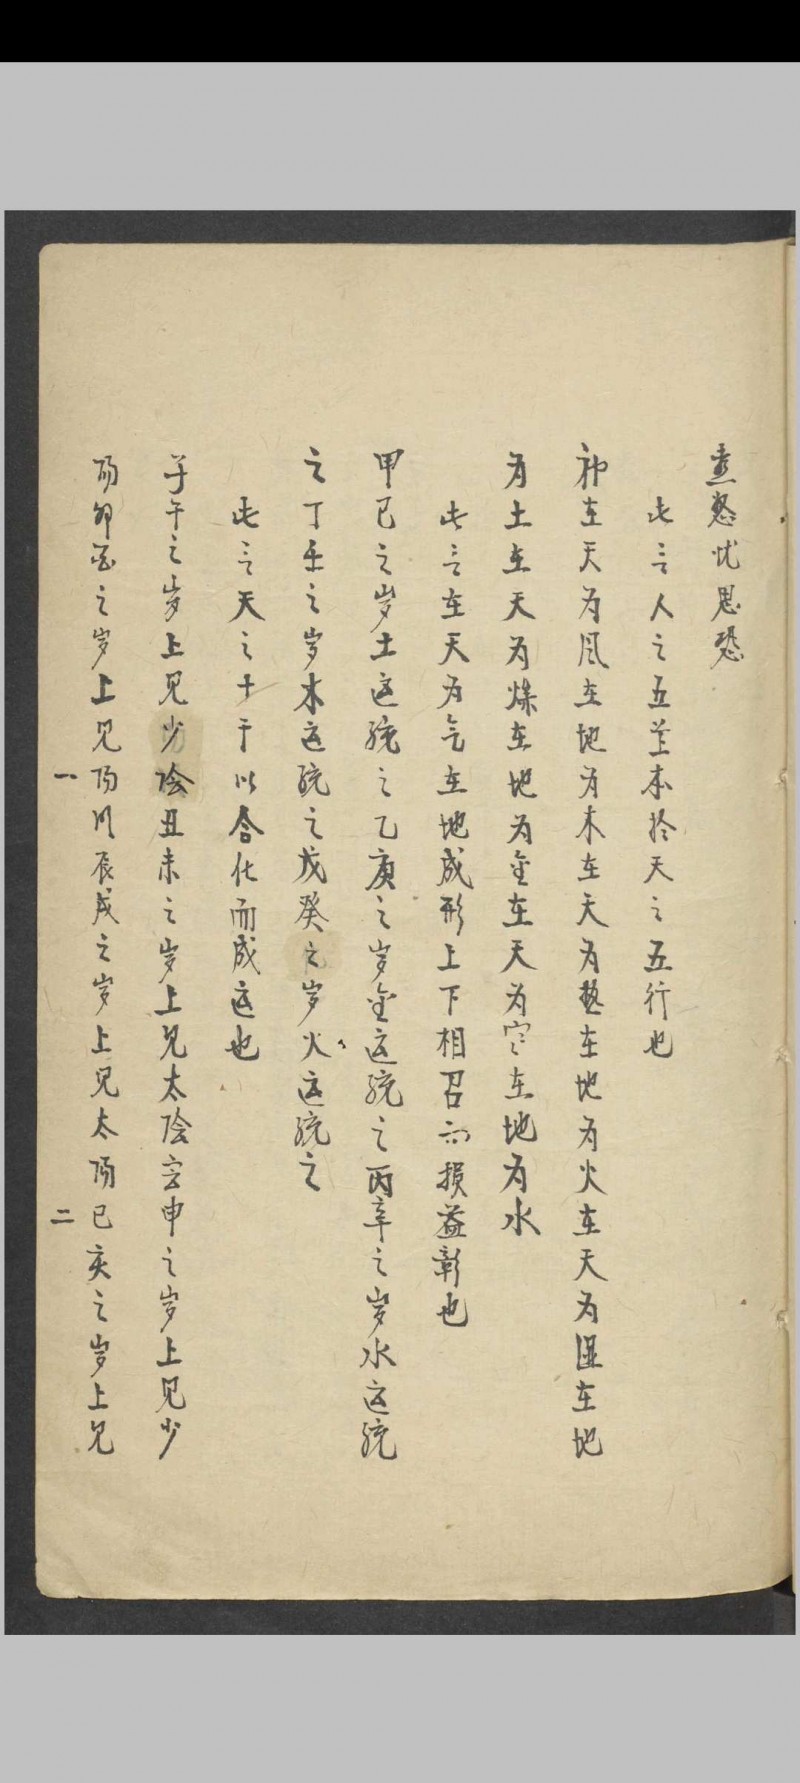 喜怒忧思恐
此言人之五志本於天之五行也
神在天为风在地为木在天为热在地为火在天为湿在地
为土在天为燥在地为金在天为寒在地为水
此言在天为气在地成形上下相召而损益彰也
甲己之岁土运统之乙庚之岁金运统之丙辛之岁水运统
之丁壬之岁木运统之戊癸之岁火运统之
此言天之十干以合化而成运也
子午之岁上见少阴丑未之岁上见太阴寅申之岁上见少
阳卯酉之岁上见阳明辰戌之岁上见太阳巳亥之岁上见
一
二